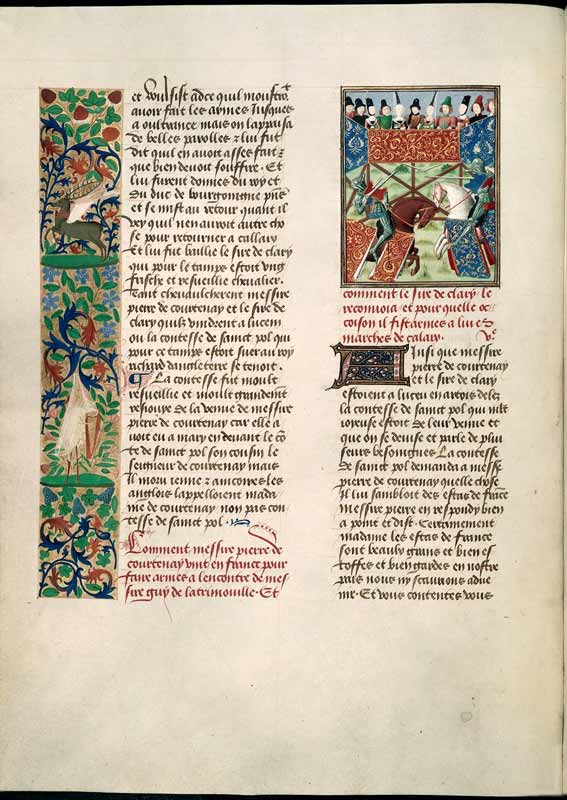 et voulsist adce quil moustroit
avoir fait les armes Jusques
a oultrance mais on lappaisa
de belles parolles & lui fut
dit quil en avoit asses fait &
que bien devoit souffire. Et
lui furent donnes du roy et
Du duc de bourgoingne pns
et se mist au retour quant il
vey quil nen auroit autre cho
se pour retourner a callaix
Et lui fut baillie le sire de clary
qui pour le temps estoit ung
frische et resveillie chevalier.
Tant chevaulcherent messire
pierre de courtenay et le sire de
clary quilz vindrent a luceu
ou la contesse de saint pol qui
pour ce temps estoit suer au roy
richard dangleterre se tenoit.
La contesse fut moult
resveillie et moult grandement
resiouye De la venue de messire
pierre de courtenay car elle a
voit eu a mary en devant le co
te de saint pol son cousin le
seigneur de courtenay mais
Il moru jenne & ancoires les
anglois lappelloient mada
me de courtenay non pas con
tesse de saint pol.
Comment messire pierre de
courtenay vint en france pour
faire armes a lencontre de mes
sire guy de latrimouille. Et
comment le sire de clary le
reconvoia et pour quelle oc
coison il fist armes a lui es
marches de calaix. v.e
Ainsi que messire
pierre de courtenay
et le sire de clary
estoient a luceu en artois delez
la contesse de saint pol qui mlt
joyeuse estoit De leur venue et
que on se devise et parle de plu
seurs besoingnes La contesse
De saint pol demanda a messe
pierre de courtenay quelle chose
Il lui sambloit des estas de france
messire pierre en respondy bien
a point et dist. Certainement
madame les estas de france
sont beaulx grans et bien es
toffes et bien gardes en nostre
pais nous ny scaurions adve
nir. Et vous contentes vous